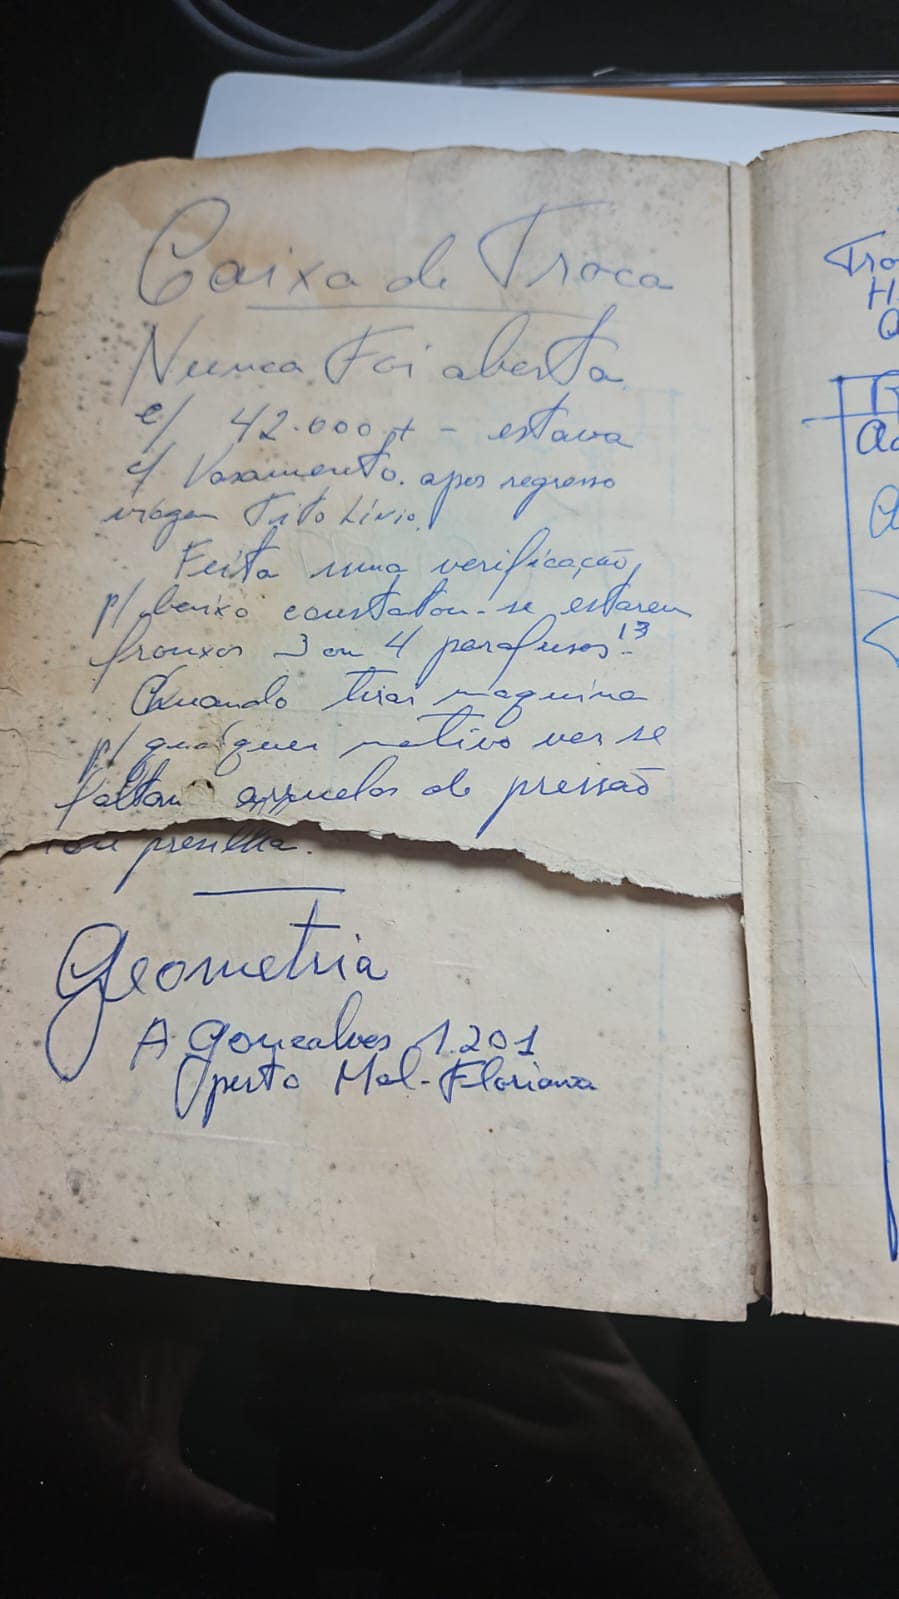 Caixa de Troca
Nunca Foi aberta
c/ 42.000 + - estava
c/ Vasamento. apos regresso
viagem Tito Livio.
Feita uma verificação,
p/ baixo constatou-se estarem
frouxos 3 ou 4 parafusos!
Quando tirar maquina
p/ qualquer motivo ver se
faltam arruelas de pressão
ou presilha.
Geometria
A Goncalves 1.201
perto Mal-Floriano
Tro
H